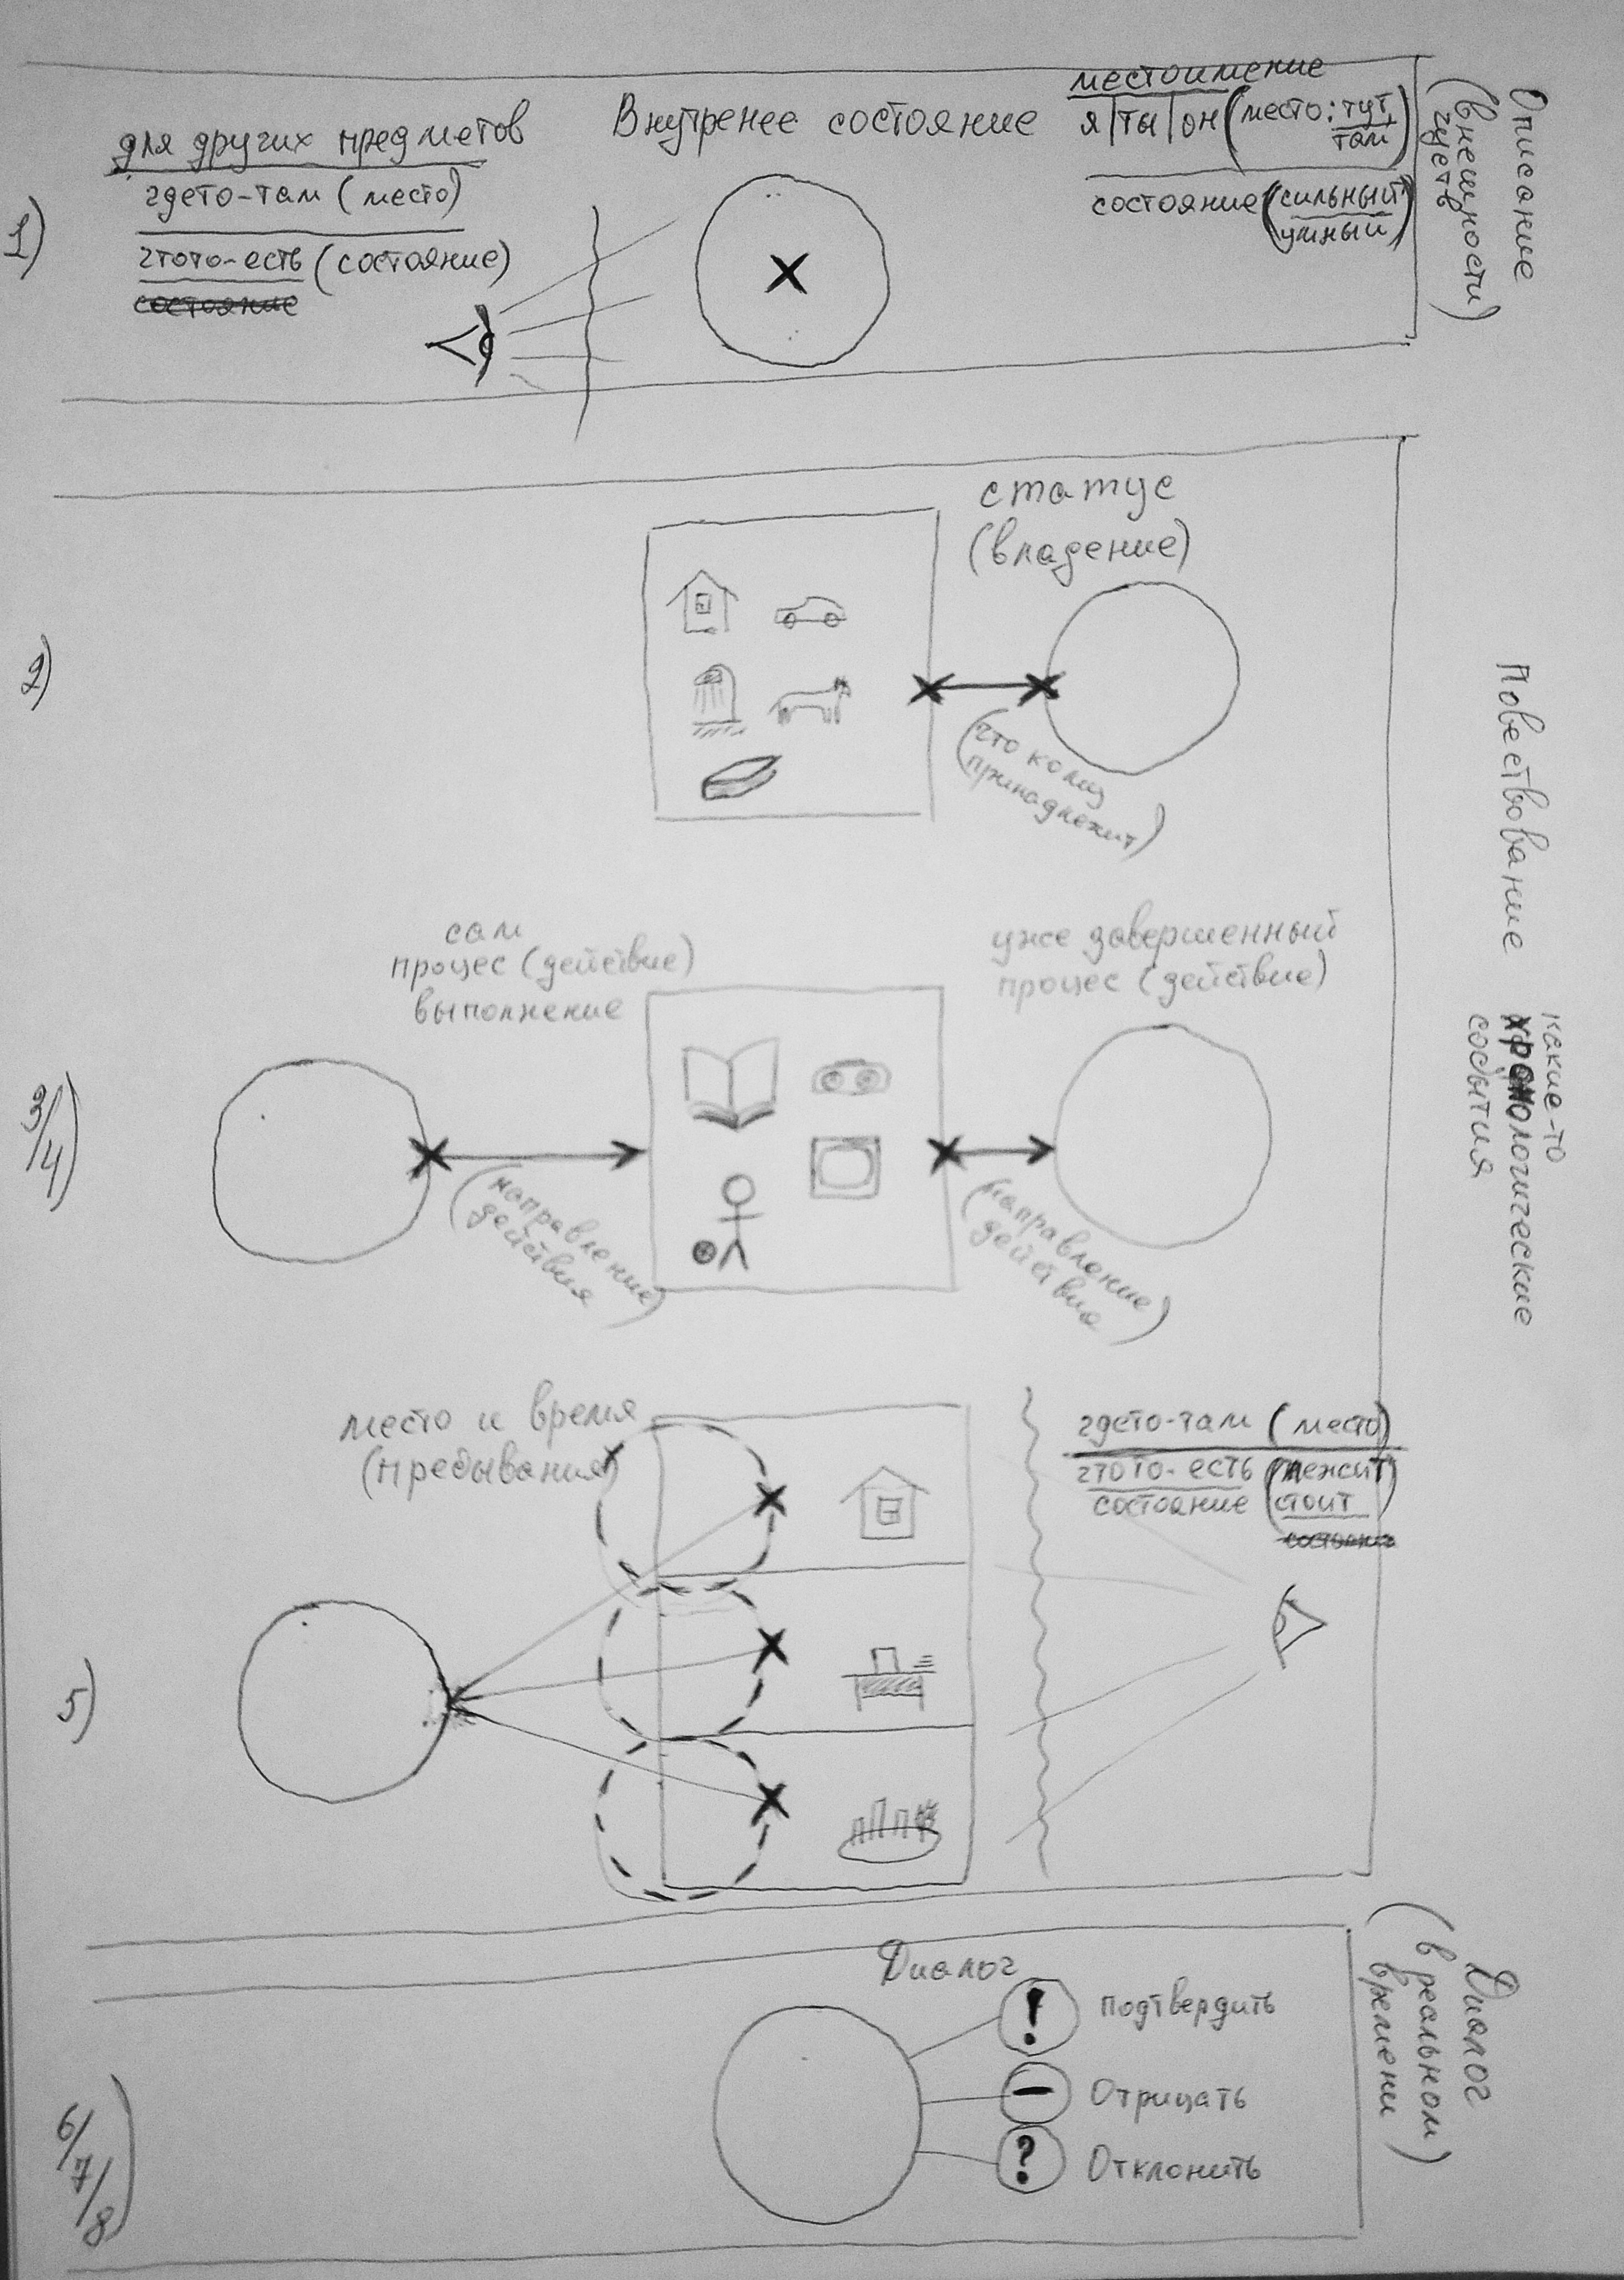 1)
для других предметов
гдето-там (место)
чтото-есть (состояние)
состояние
Внутренее состояние
местоимение
я|ты|он (место: тут,
там)
состояние (сильный
умный)
Описание
(внешности
чуств)
2)
статус
(владение)
(что кому
принадлежит)
Повествование
какие-то
хронологические
события
3/4)
сам
процес (действие)
выполнение
уже завершенный
процес (действие)
(направление
действия)
(направление
действия)
5)
место и время
(пребывания)
гдето-там (место)
чтото-есть (лежит
состояние (стоит)
состояние
6/7/8)
Диалог
! подтвердить
– Отрицать
? Отклонить
Диалог
(в реальном
времени)